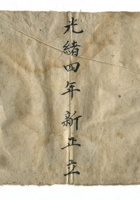 光緒四年新正立